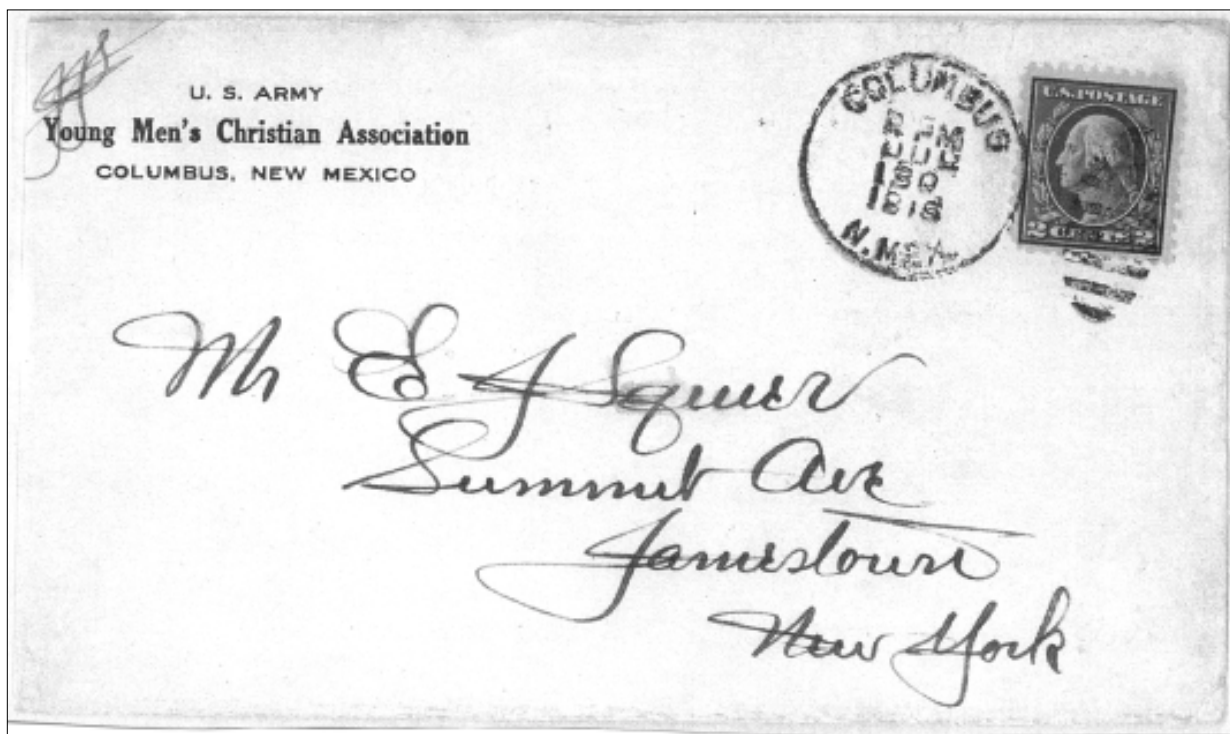 U. S. ARMY
Young Men's Christian Association
COLUMBUS, NEW MEXICO
COLUMBUS
N. MEX.
U.S. POSTAGE
2 CENTS 2
Mr E J Squier
Summit Ave
Jamestown
New York